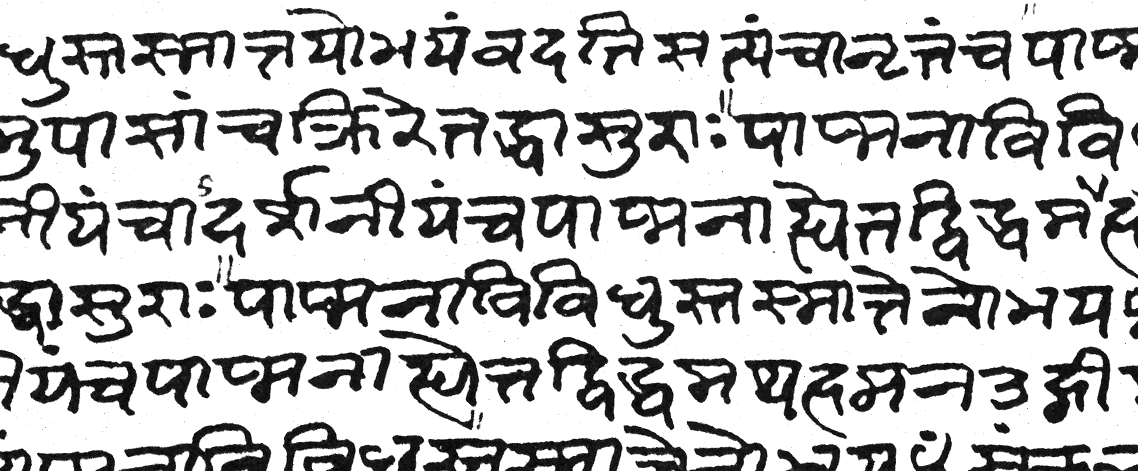 धुस्तस्मात्तयोभयंवदतिसत्यंचानृतंचपाप्म
मुपासांचक्रिरेतद्धासुराः॥पाप्मनाविवि
नीयंचाऽदर्शनीयंचपाप्मनाह्येतद्विद्धम
द्धासुराः॥पाप्मनाविविधुस्तस्मात्तेनोभय
यंचपाप्मनाह्येतद्विद्धमथहमनउद्गी